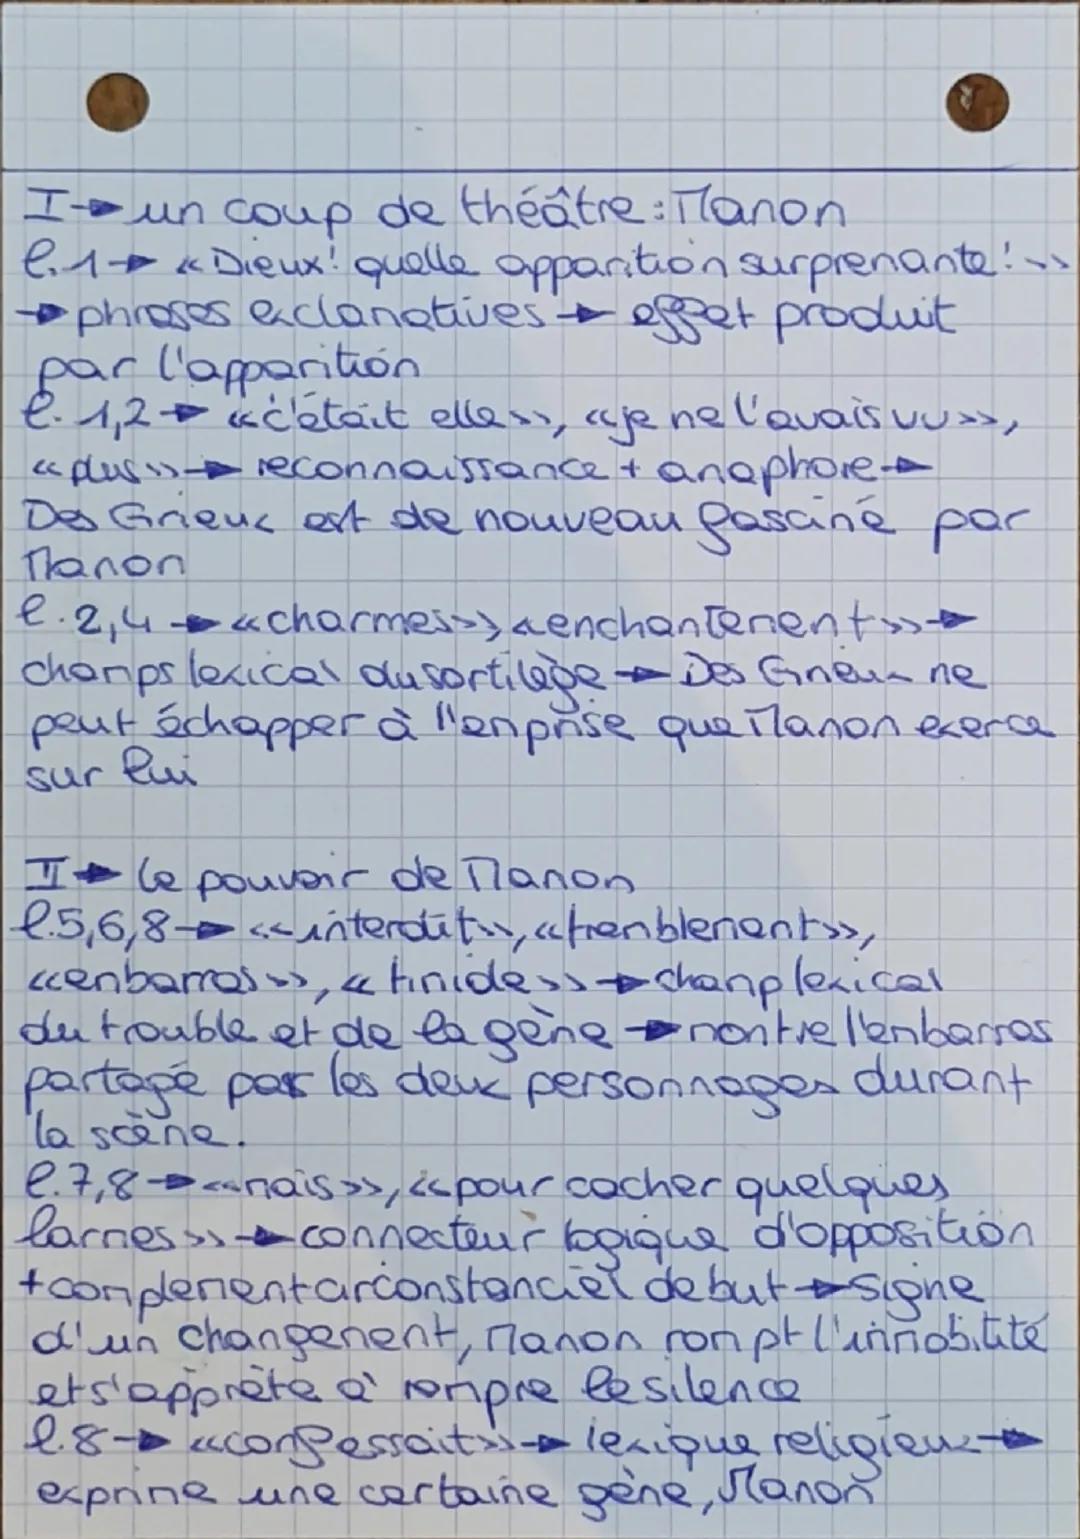 I → un coup de théâtre : Manon
l.1 → « Dieux! quelle apparition surprenante! »
→ phrases exclamatives → effet produit
par l'apparition
l. 1,2 → « c'était elle », « je ne l'avais vu »,
« plus » → reconnaissance + anaphore →
Des Grieux est de nouveau fasciné par
Manon
l.2,4 → « charmes », « enchantement » →
champs lexical du sortilège → Des Grieux ne
peut échapper à l'emprise que Manon exerce
sur lui
II → le pouvoir de Manon
l.5,6,8 → « interdit », « tremblement »,
« embarras », « timide » → champ lexical
du trouble et de la gène → montre l'embarras
partagé par les deux personnages durant
la scène.
l.7,8 → « mais », « pour cacher quelques
larmes » → connecteur logique d'opposition
+ complement circonstanciel de but → signe
d'un changement, Manon rompt l'immobilité
et s'apprète à rompre le silence
l.8 → « confessait » → lexique religieux →
exprime une certaine gène, Manon